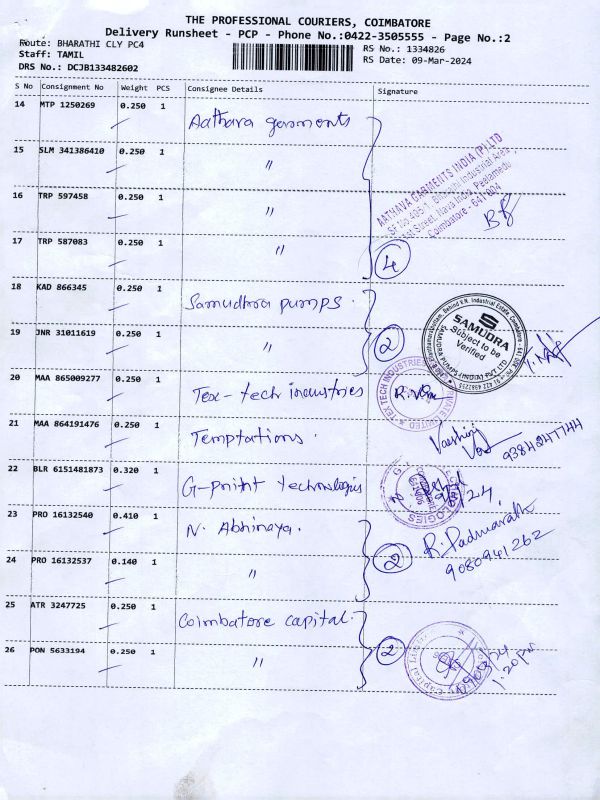 THE PROFESSIONAL COURIERS, COIMBATORE
Delivery Runsheet - PCP - Phone No.:0422-3505555 - Page No.:2
Route: BHARATHI CLY PC4
RS No.: 1334826
Staff: TAMIL
RS Date: 09-Mar-2024
DRS No.: DCJB133482602
S No Consignment No Weight PCS Consignee Details Signature
14 MTP 1250269 0.250 1 Aathava garments
15 SLM 341386410 0.250 1 〃
AATHAVA GARMENTS INDIA (P) LTD
Coimbatore - 641 004
16 TRP 597458 0.250 1 〃
17 TRP 587083 0.250 1 〃 4
18 KAD 866345 0.250 1 Samudhra pumps.
SAMUDRA
Subject to be
Verified
19 JNR 31011619 0.250 1 〃 2
20 MAA 865009277 0.250 1 Tex-tech industries
21 MAA 864191476 0.250 1 Temptations.
9384247744
22 BLR 6151481873 0.320 1 G-print technologies
23 PRO 16132540 0.410 1 N. Abhinaya.
R. Padmavathi
9080941262
24 PRO 16132537 0.140 1 〃 2
25 ATR 3247725 0.250 1 Coimbatore capital.
26 PON 5633194 0.250 1 〃 2
1.20 pm